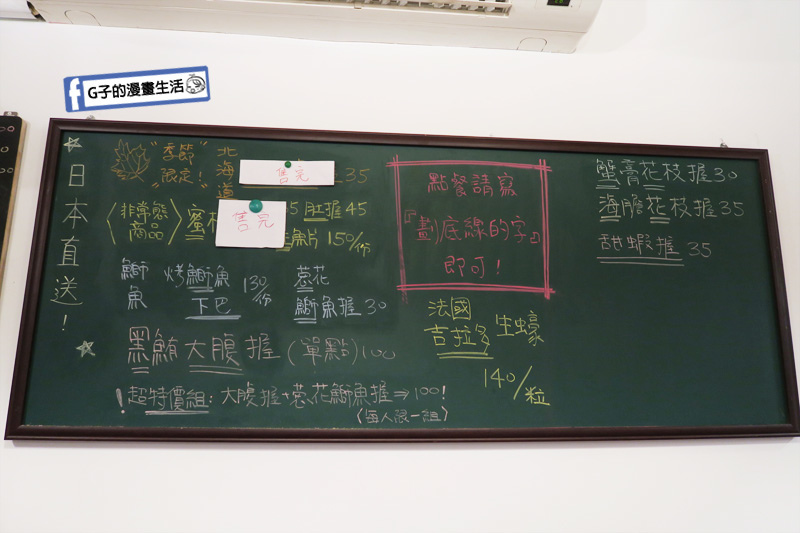 G子的漫畫生活
日本直送！
"季節限定！"
北海道
售完
35
〈非常態商品〉
售完
肛握45
魚片 150/份
鰤魚
烤鰤魚下巴 130/份
蔥花鰤魚握 30
黑鮪大腹握 (單點) 100
！超特價組：大腹握+蔥花鰤魚握⇒100！
〈每人限一組〉
點餐請寫
『劃底線的字』
即可！
法國
吉拉多 生蠔
140/粒
蟹膏花枝握30
海膽花枝握35
甜蝦握 35